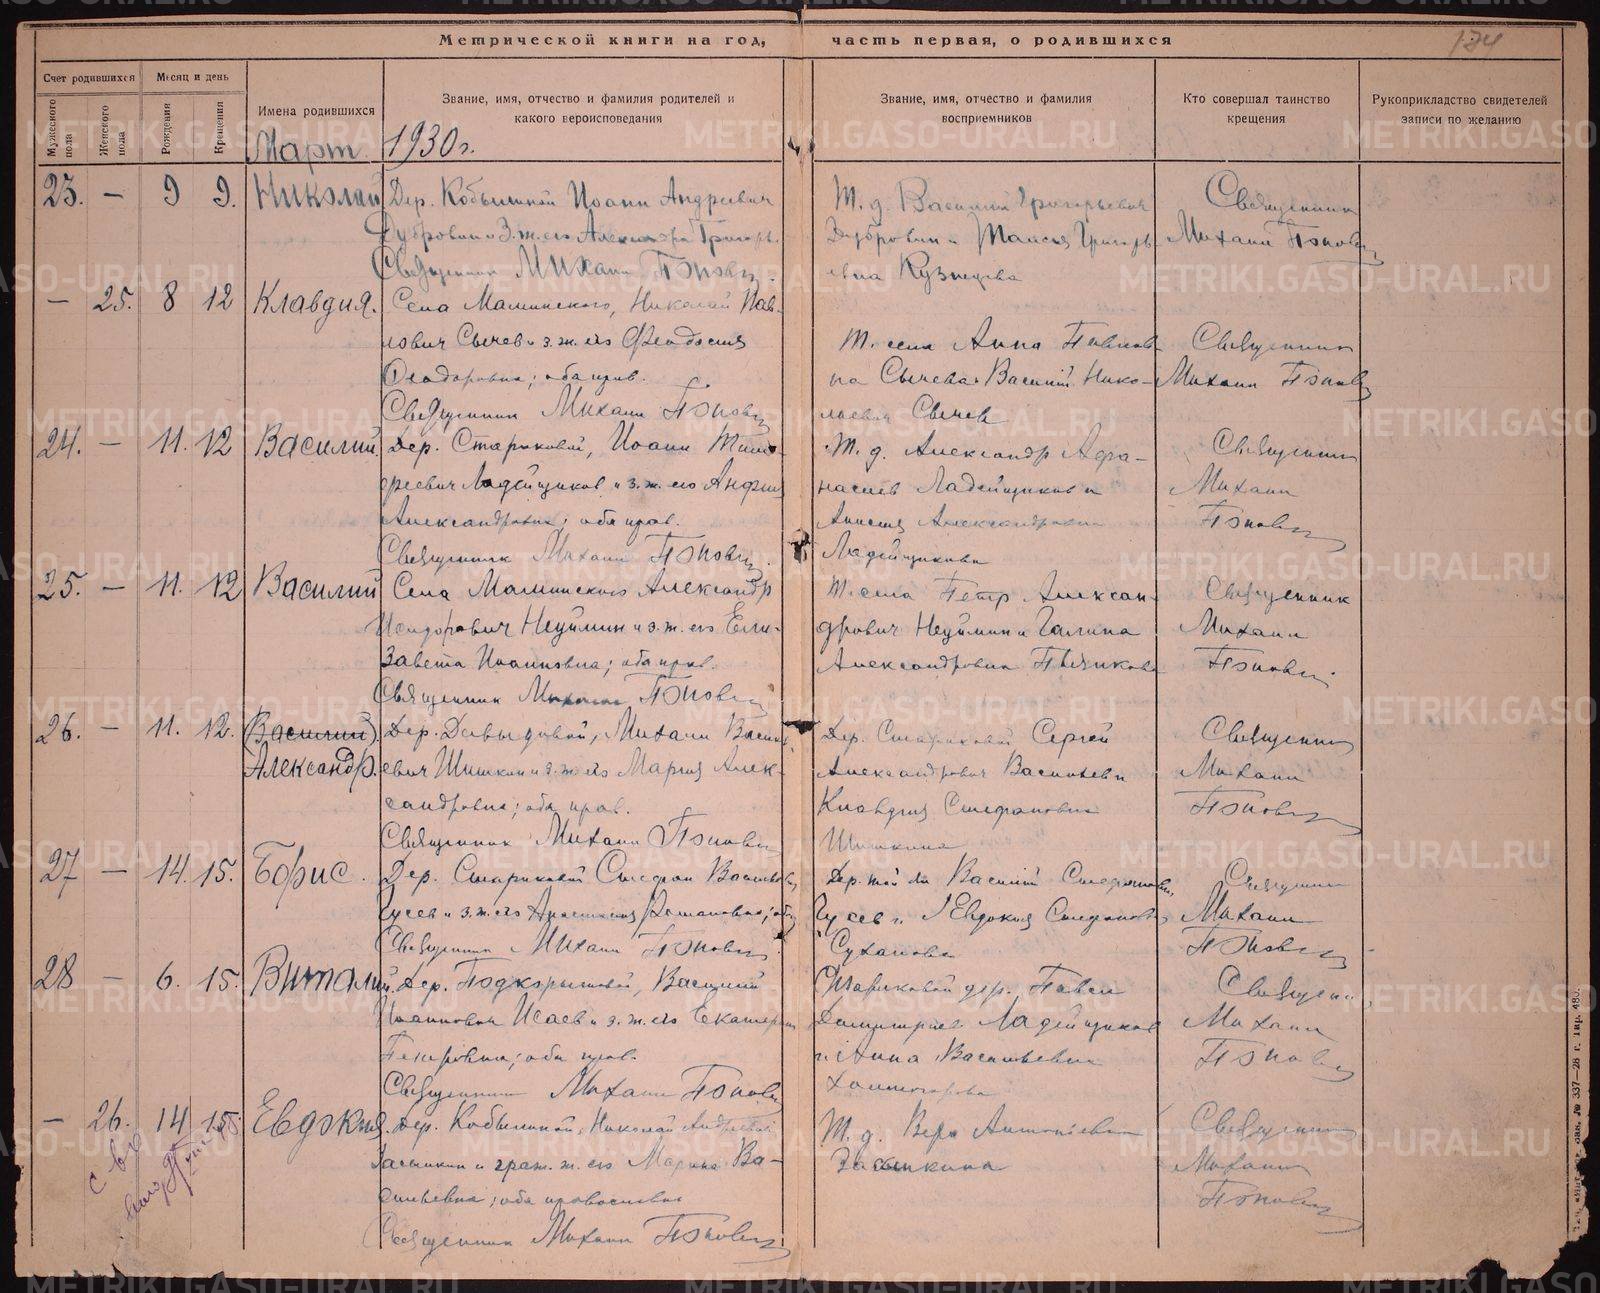 Метрической книги на год, часть первая, о родившихся
134
Счет родившихся
Месяц и день
Мужеского пола
Женского пола
Рождения
Крещения
Имена родившихся
Звание, имя, отчество и фамилия родителей и
какого вероисповедания
Звание, имя, отчество и фамилия
восприемников
Кто совершал таинство
крещения
Рукоприкладство свидетелей
записи по желанию
Март 1930 г.
23. — 9 9. Николай Дер. Кобылиной Иоанн Андреевич
Дубровин и з. ж. его Александра Григорь.
Священник Михаил Попов
Т. д. Василий Григорьевич
Дубровин и Таисия Григорь
евна Кузнецова
Священник
Михаил Попов
— 25. 8 12 Клавдия. Села Маминского, Николай Пав-
лович Сычев и з. ж. его Феодосия
Феодоровна; оба прав.
Священник Михаил Попов
Т. села Анна Павлов
на Сычева Василий Нико-
лаевич Сычев
Священник
Михаил Попов
24. — 11. 12 Василий Дер. Стариковой, Иоанн Тимо-
феевич Ладейщиков и з. ж. его Анфия
Александровна; оба прав.
Священник Михаил Попов
Т. д. Александр Афа-
насиев Ладейщиков и
Анисия Александровна
Ладейщикова
Священник
Михаил
Попов
25. — 11. 12 Василий Села Маминского Александр
Исидорович Неуймин и з. ж. его Ели-
завета Иоанновна; оба прав.
Священник Михаил Попов
Т. села Петр Алексан-
дрович Неуймин и Галина
Александровна
Священник
Михаил
Попов
26. — 11. 12. (Василий) Дер. Давыдовой, Михаил Васильевич
Александр. Шишкин и з. ж. его Мария Алек-
сандровна; оба прав.
Священник Михаил Попов
Дер. Стариковой Сергей
Александрович Васильев и
Клавдия Стефановна
Шишкина
Священник
Михаил
Попов
27 — 14. 15. Борис. Дер. Стариковой Стефан Васильев,
Гусев и з. ж. его Анастасия Романовна; оба
Священник Михаил Попов
Дер. той же Василий Стефанов,
Гусев и Евдокия Стефанов
Суханова
Священник
Михаил
Попов
28 — 6. 15. Виталий. Дер. Подкорытовой, Василий
Иоаннович Исаев и з. ж. его Екатерина
Петровна; оба прав.
Священник Михаил Попов
Стариковой дер. Павел
Димитриев Ладейщиков
и Анна Васильевна
Холмогорова
Священник
Михаил
Попов
— 26. 14 15 Евдокия. Дер. Кобылиной, Николай Андреевич
Засыпкин и граж. ж. его Марина Ва-
сильевна; оба православны
Священник Михаил Попов
Т. д. Вера Антониевна
Засыпкина
Священник
Михаил
Попов
METRIKI.GASO-URAL.RU